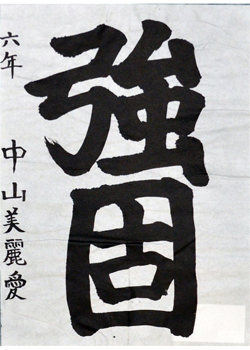 強固
六年 中山美麗愛